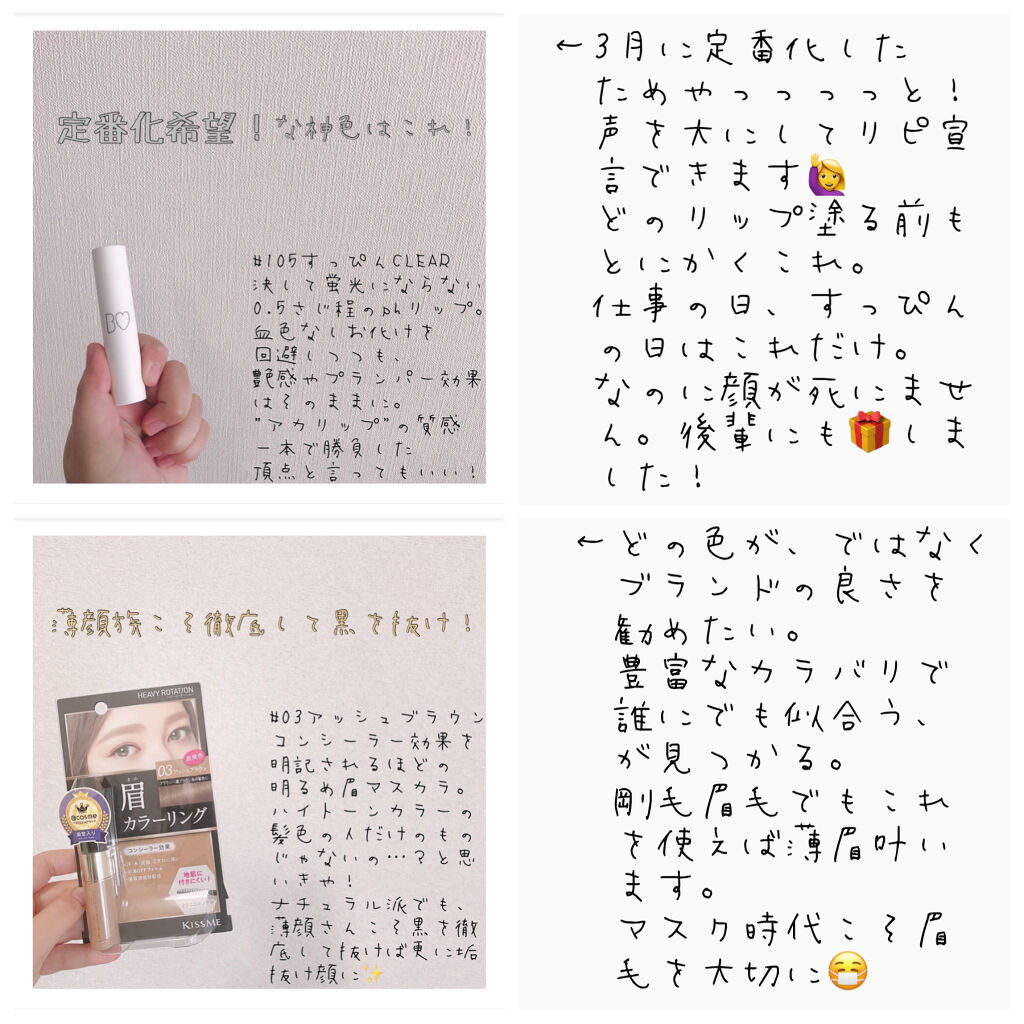 定番化希望！な神色はこれ！
B♡
#105すっぴんCLEAR
決して蛍光にならない
0.5さじ程のphリップ。
血色なしお化けを
回避しつつも、
艶感やプランパー効果
はそのままに。
"アカリップ"の質感
一本で勝負した
頂点と言ってもいい！
←3月に定番化した
ためやっっっっと！
声を大にしてリピ宣
言できます🙋‍♀️
どのリップ塗る前も
とにかくこれ。
仕事の日、すっぴん
の日はこれだけ。
なのに顔が死にませ
ん。後輩にも🎁しま
した！
薄顔族こそ徹底して黒を抜け！
HEAVY ROTATION
03アッシュブラウン
眉
カラーリング
@cosme
殿堂入り
コンシーラー効果
地肌に
付きにくい！
KISSME
#03アッシュブラウン
コンシーラー効果を
明記されるほどの
明るめ眉マスカラ。
ハイトーンカラーの
髪色の人だけのもの
じゃないの…？と思
いきや！
ナチュラル派でも、
薄顔さんこそ黒を徹
底して抜けば更に垢
抜け顔に✨
←どの色が、ではなく
ブランドの良さを
勧めたい。
豊富なカラバリで
誰にでも似合う、
が見つかる。
剛毛眉毛でもこれ
を使えば薄眉叶い
ます。
マスク時代こそ眉
毛を大切に😷